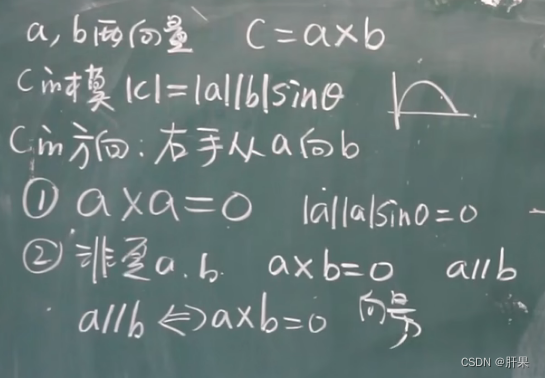 a,b两向量 C=a×b
C的模|C|=|a||b|sinθ
C的方向:右手从a向b
① a×a=0 |a||a|sin0=0
② 非零a.b. a×b=0 a//b
a//b⇔a×b=0
CSDN @肝果